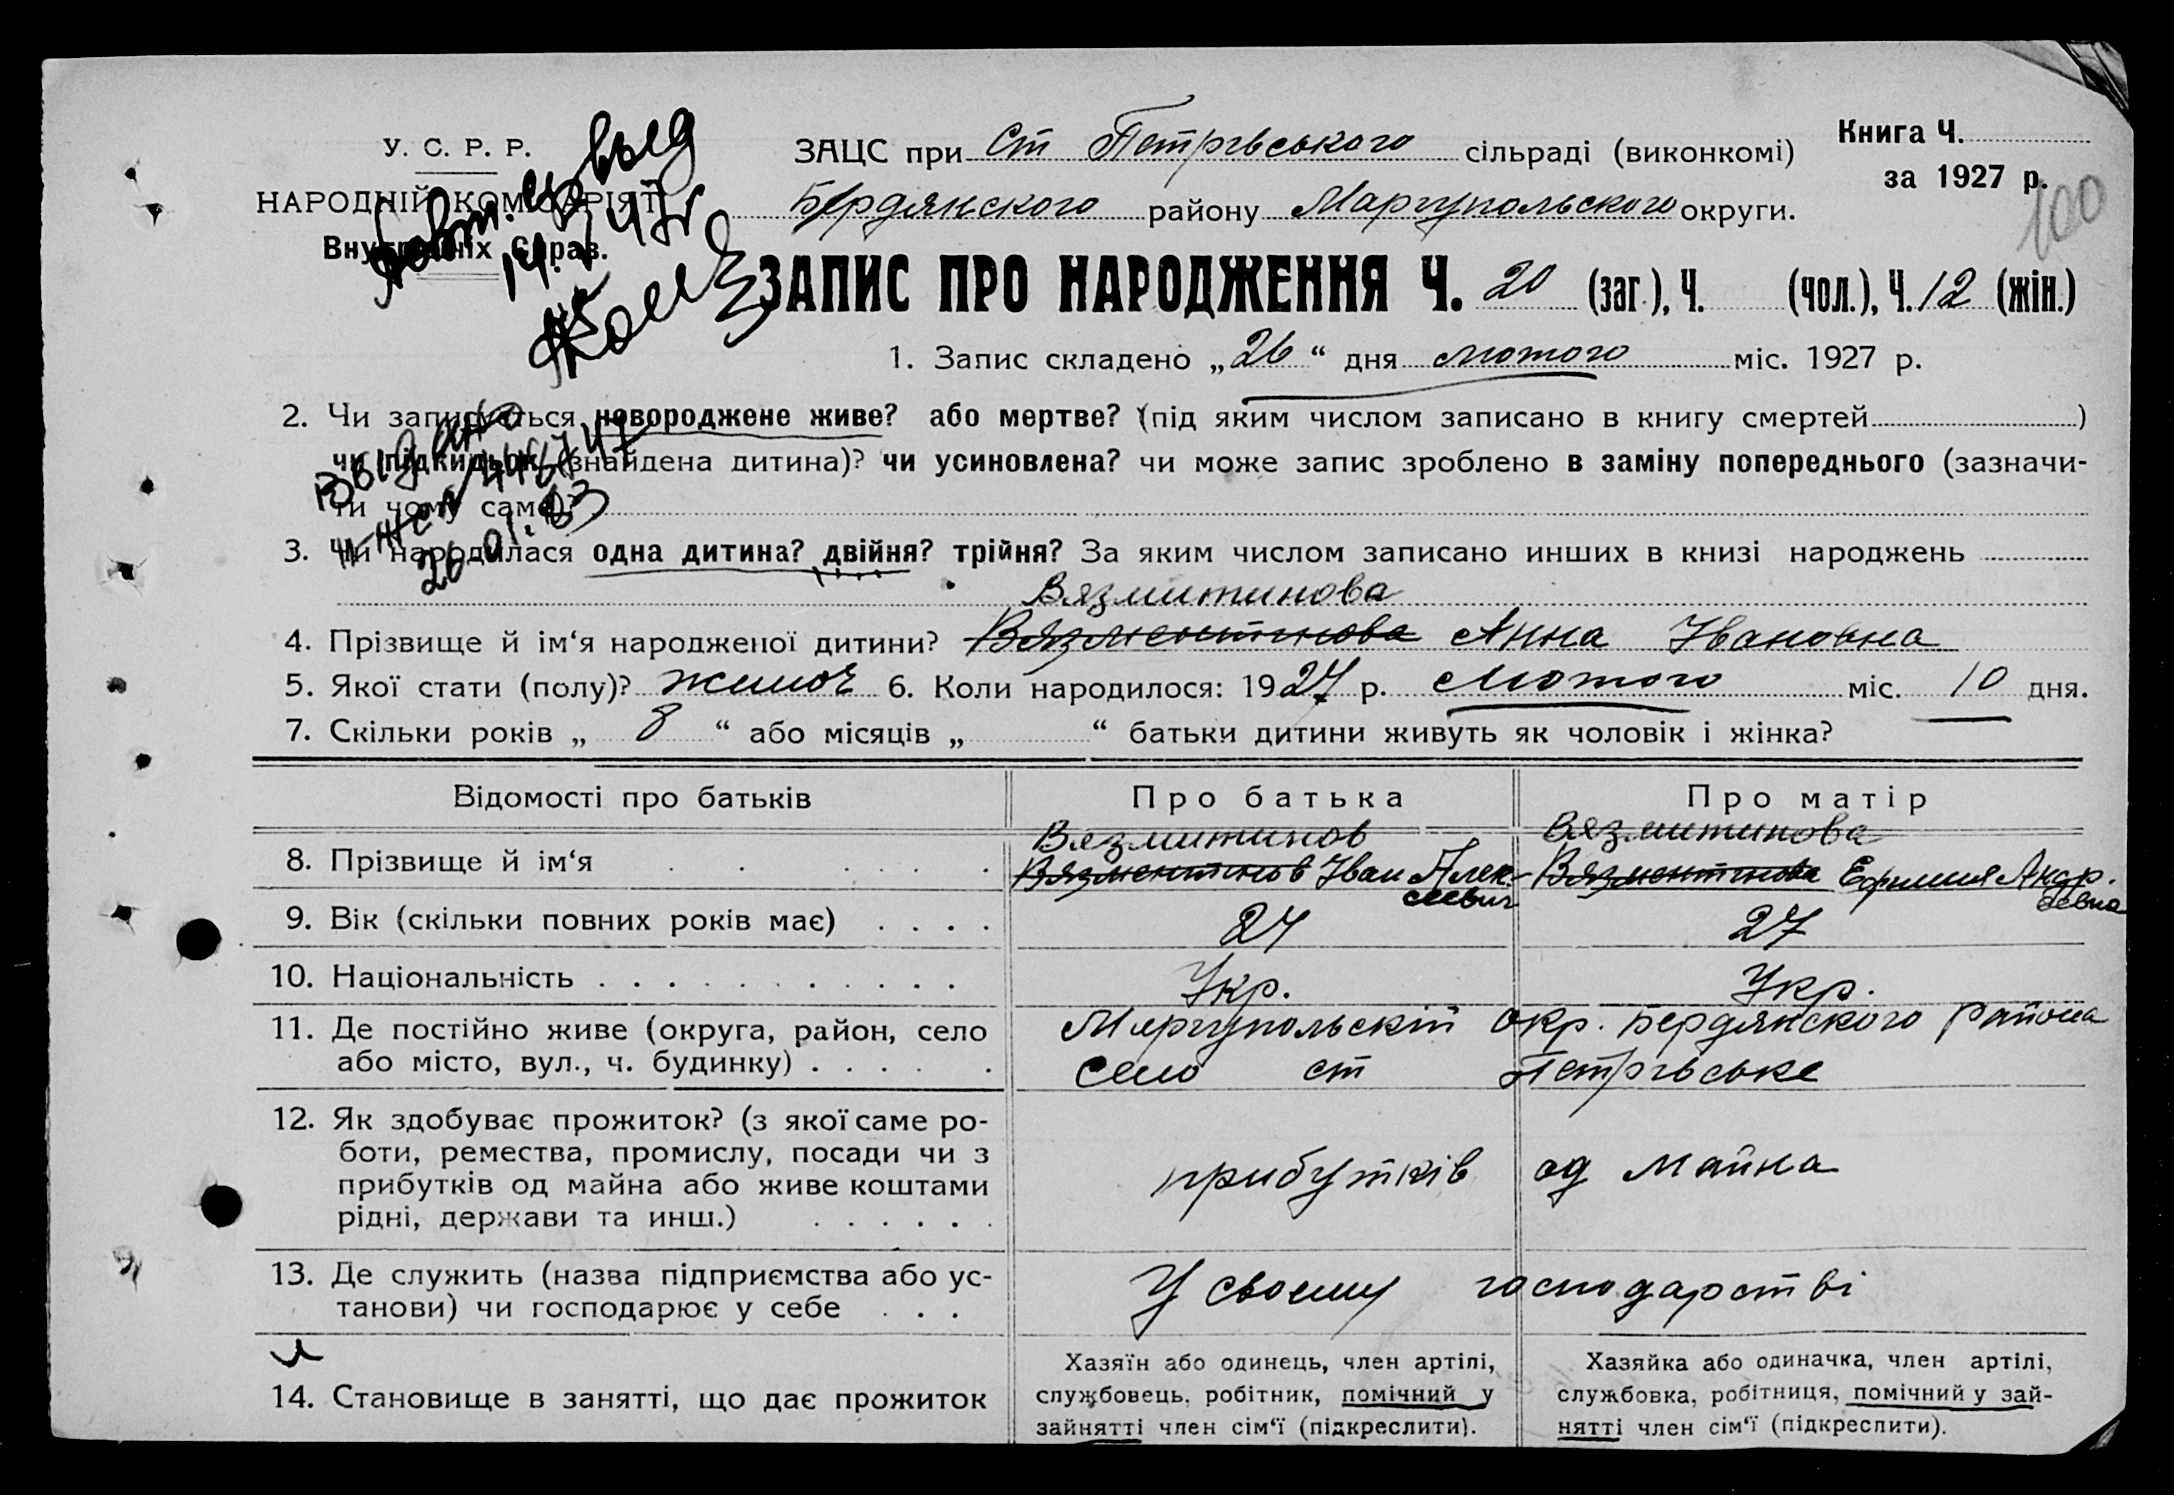 У. С. Р. Р.
НАРОДНІЙ КОМІСАРІЯТ
Внутрішніх Справ.
ЗАЦС при Ст Петрівського сільраді (виконкомі)
Бердянского району Маріупольского округи.
Книга Ч.
за 1927 р.
100
ЗАПИС ПРО НАРОДЖЕННЯ Ч. 20 (заг.), Ч. (чол.), Ч. 12 (жін.)
1. Запис складено „26“ дня лютого міс. 1927 р.
2. Чи записується новороджене живе? або мертве? (під яким числом записано в книгу смертей )
чи підкидьок (знайдена дитина)? чи усиновлена? чи може запис зроблено в заміну попереднього (зазначи-
ти чому саме)?
Выдано
26.01.83
3. Чи народилася одна дитина? двійня? трійня? За яким числом записано инших в книзі народжень
Вязмитинова
4. Прізвище й ім‘я народженої дитини? Вязментинова Анна Івановна
5. Якої стати (полу)? жиноч 6. Коли народилося: 1927 р. Лютого міс. 10 дня.
7. Скільки років „ 8 “ або місяців „ “ батьки дитини живуть як чоловік і жінка?
Відомості про батьків Про батька Про матір
Вязмитинов Вязмитинова
8. Прізвище й ім‘я Вязментинов Іван Алек- Вязментинова Ефимия Андр.
сеевич еевна
9. Вік (скільки повних років має) 27 27
10. Національність Укр. Укр.
11. Де постійно живе (округа, район, село Маріупольскій окр. Бердянского района
або місто, вул., ч. будинку) Село ст Петрівське
12. Як здобуває прожиток? (з якої саме ро-
боти, ремества, промислу, посади чи з
прибутків од майна або живе коштами прибутків од майна
рідні, держави та инш.)
13. Де служить (назва підприємства або ус- У своему господарстві
танови) чи господарює у себе
14. Становище в занятті, що дає прожиток
Хазяїн або одинець, член артілі,
службовець, робітник, помічний у
зайнятті член сім‘ї (підкреслити).
Хазяйка або одиначка, член артілі,
службовка, робітниця, помічний у зай-
нятті член сім‘ї (підкреслити).